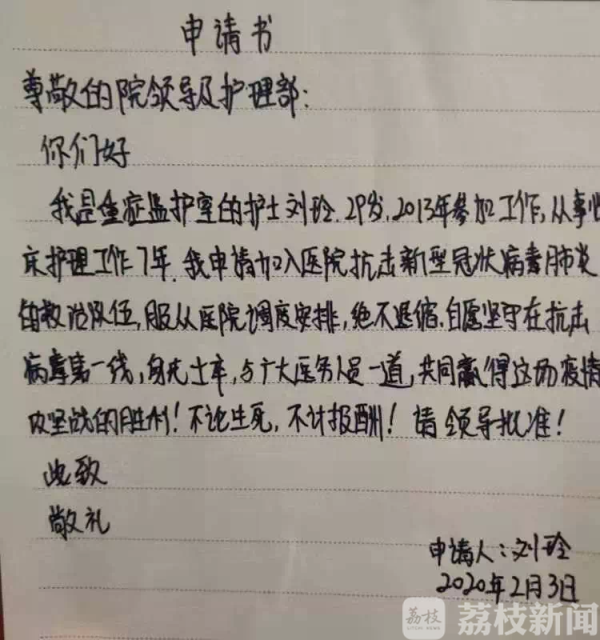 申请书
尊敬的院领导及护理部:
你们好
我是重症监护室的护士刘玲.29岁,2013年参加工作,从事临
床护理工作7年.我申请加入医院抗击新型冠状病毒肺炎
的救治队伍,服从医院调度安排,绝不退缩.自愿坚守在抗击
病毒第一线,身先士卒,与广大医务人员一道,共同赢得这场疫情
攻坚战的胜利!不论生死,不计报酬!请领导批准!
此致
敬礼
申请人:刘玲
2020年2月3日
荔枝 荔枝新闻
荔枝新闻